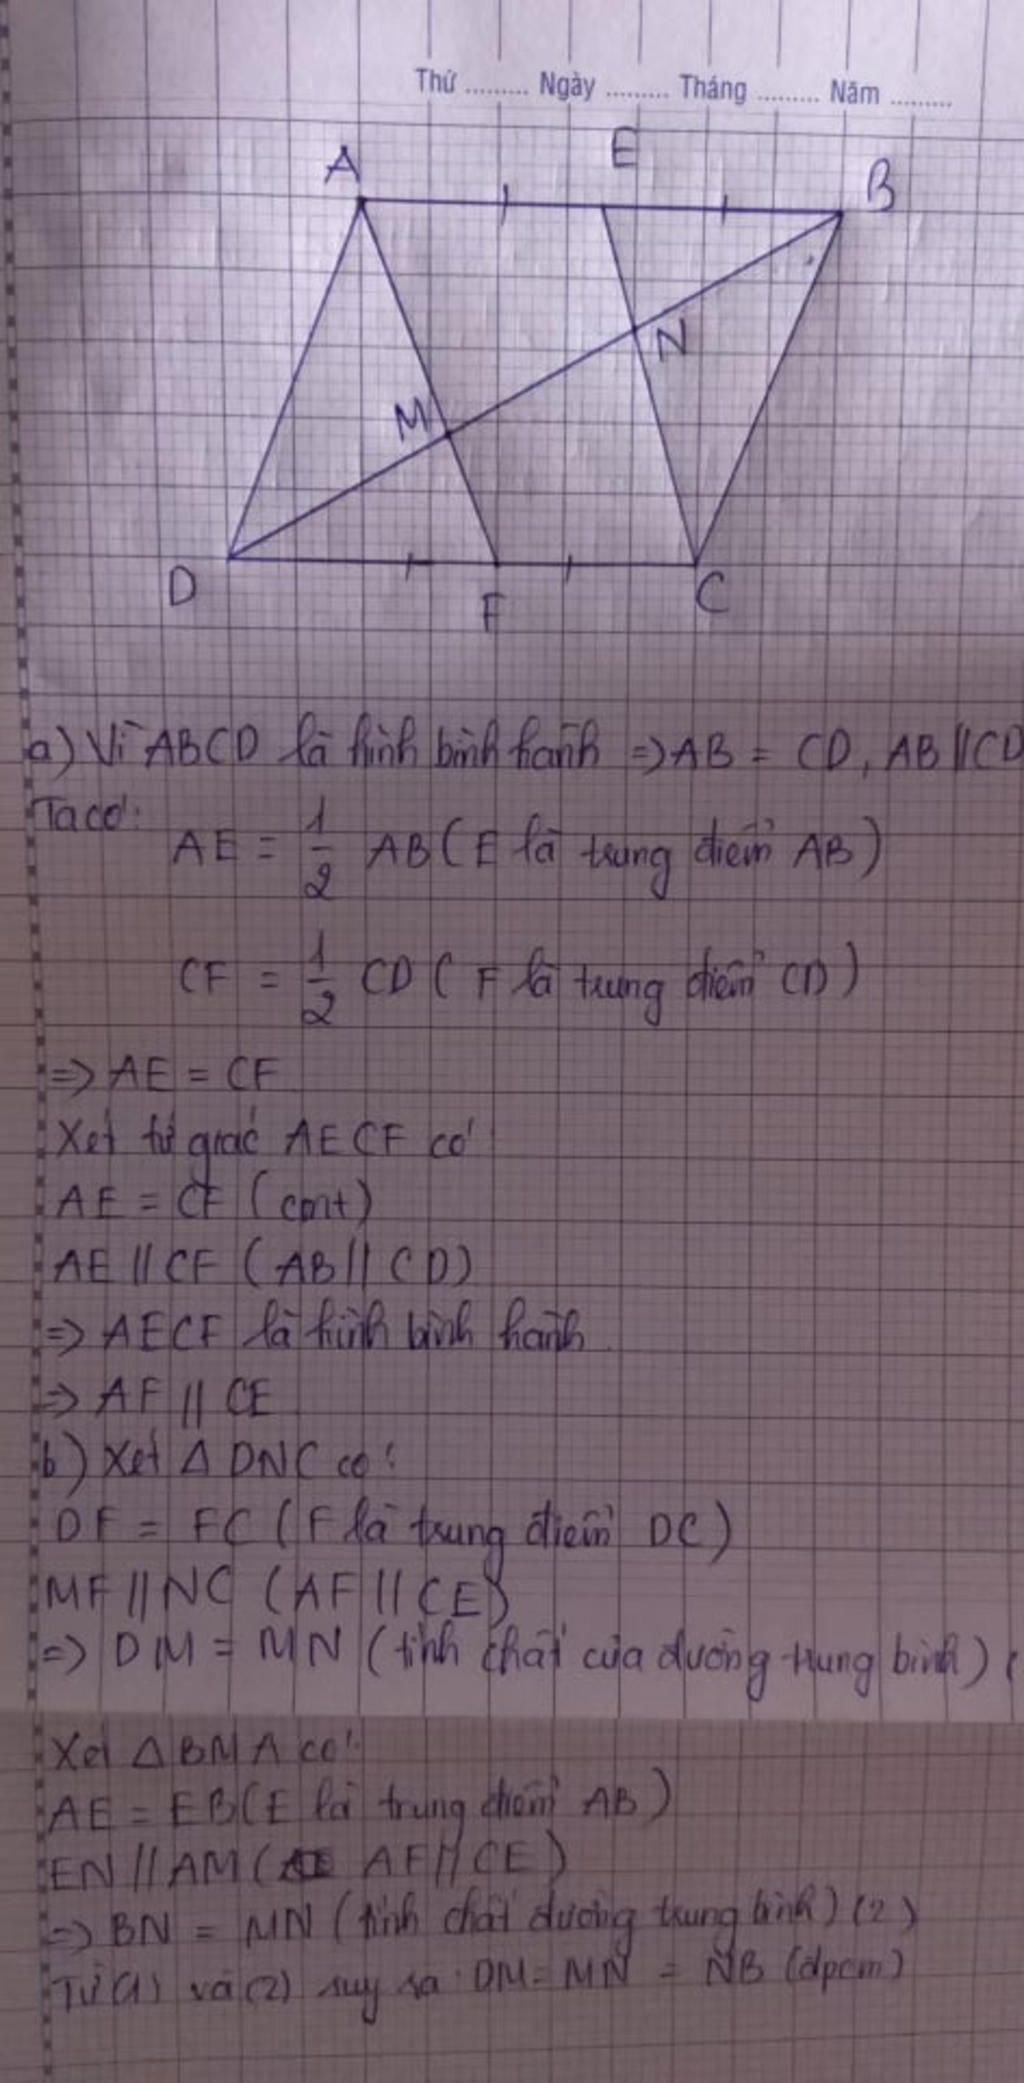 Thứ ......... Ngày ......... Tháng ......... Năm .........
A E B
N
M
D F C
a) Vì ABCD là hình bình hành => AB = CD, AB // CD
Ta có:
AE = 1/2 AB ( E là trung điểm AB )
CF = 1/2 CD ( F là trung điểm CD )
=> AE = CF
Xét tứ giác AECF có
AE = CF ( cmt )
AE // CF ( AB // CD )
=> AECF là hình bình hành
=> AF // CE
b) Xét Δ DNC có:
DF = FC ( F là trung điểm DC )
MF // NC ( AF // CE )
=> DM = MN ( tính chất của đường trung bình ) (
Xét Δ BMA có:
AE = EB ( E là trung điểm AB )
EN // AM ( AF // CE )
=> BN = MN ( tính chất đường trung bình ) (2)
Từ (1) và (2) suy ra DM = MN = NB (đpcm)